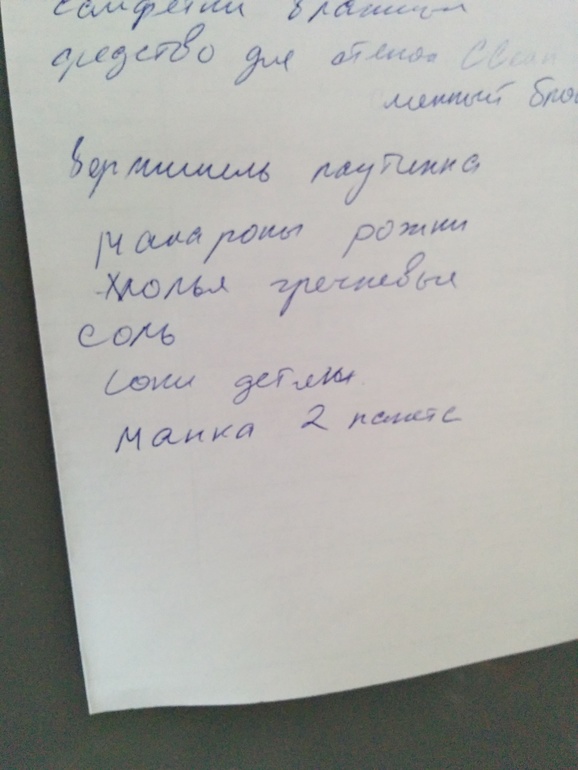 салфетки влажные
средство для стекол
менный
вермишель паутинка
макароны рожки
хлопья гречневые
соль
соки детям
манка 2 пакета